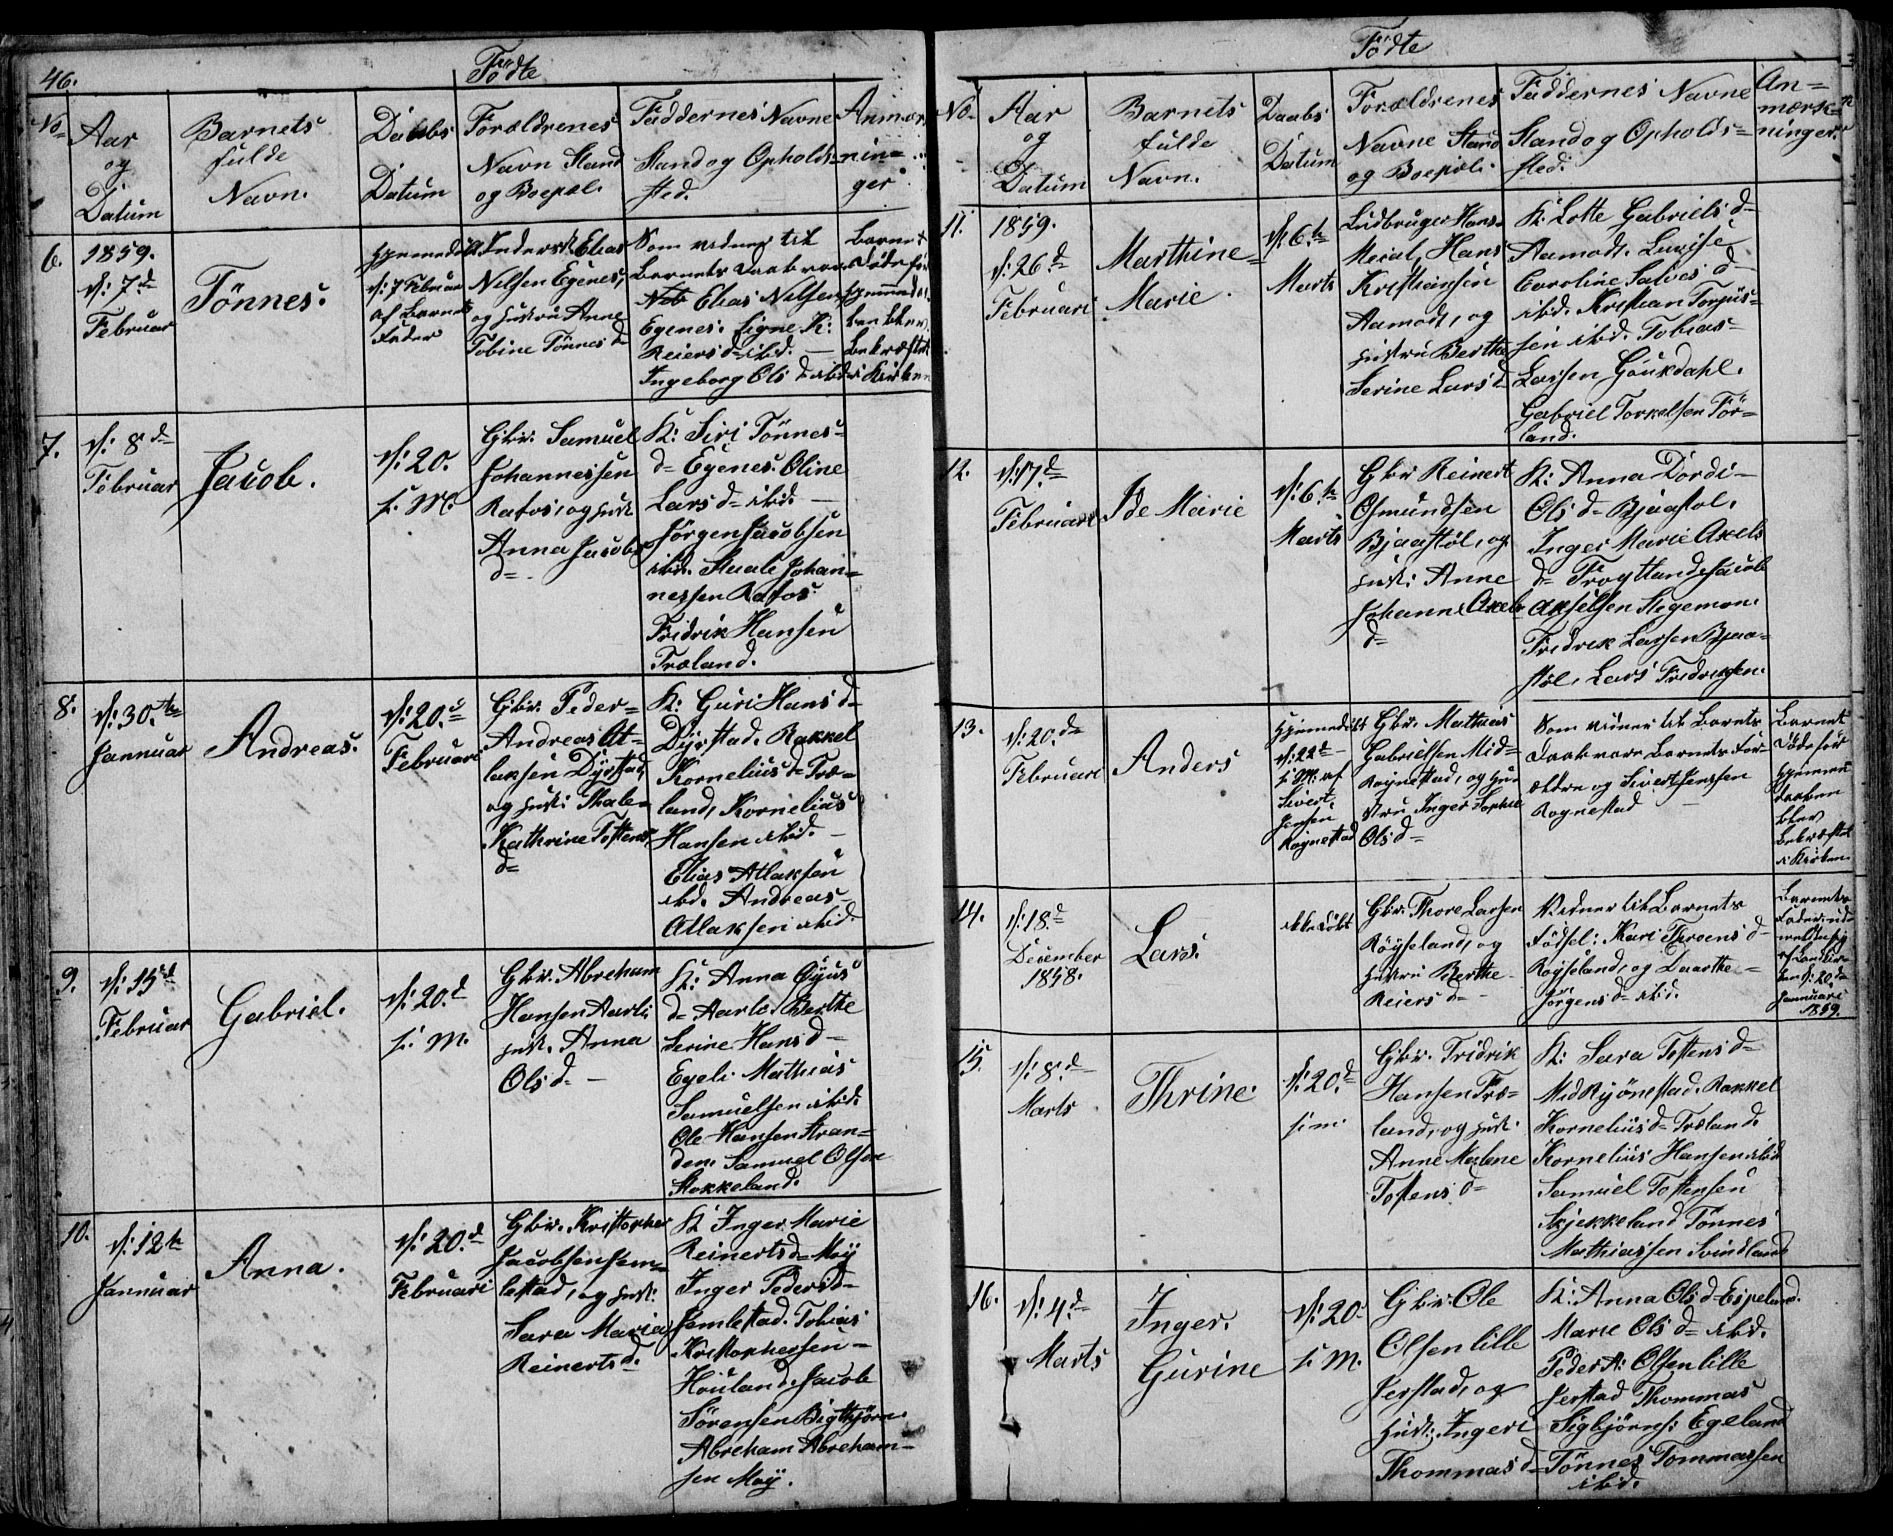 46.
Födte
No
Aar
og
Datum
Barnets
fulde
Navn.
Daabs
Datum
Forældrenes
Navn Stand
og Boepæl.
Faddernes Navne
Stand og Opholds-
sted.
Anmær
nin=
ger
6.
1859.
d: 7.d
Februar
Tönnes.
d: 7 Februar
af Barnets
Fader
Elias
Nelsen Egenes,
og hustru Anne
Tobine Tönnesd
Som vidner til
Barnets Daab var
Elias Nelsen
Egenes. Signe K:
Reiersd ibid.
Ingeborg Olsd ibid
Barnet
döde för
blev
Bekræftet
i Kirken
7.
d: 8 d
Februar
Jacob.
d: 20.
s. M.
Gbr. Samuel
Johannessen
Rafos, og hust
Anna Jacobs
d=
K: Siri Tönnes=
d= Egenes. Oline
Lars d= ibid.
Jörgen Jacobsen
ibid. Staale Johan=
nessen Rafos.
Fridrik Hansen
Træland.
8.
d: 30.te
Januar
Andreas.
d: 20.d
Februari
Gbr. Peder=
Andreas At=
laksen Dyrstad,
og hust: Thale=
Kathrine Tostens
d=
K: Guri Hans d=
Dyrstad. Rakkel
Kornelius d= Træ=
land, Kornelius
Hansen ibid.
Elias Atlaksen
ibid. Andreas
Atlaksen ibid.
9.
d: 15d
Februar
Gabriel.
d: 20.d
s. M.
Gbr. Abreham
Hansen Aarli
hust. Anna
Ols d.
K: Anna
d= Aarli. Berthe
Serine Hans d=
Egeli Mathias
Samuelsen ibid.
Ole Hansen Stran=
den. Samuel Olsen
Stokkeland.
10.
d: 12te
Januar
Anna.
d: 20.d
Februari
Gbr. Kristopher
Jacobsen Jem=
lestad, og hust:
Sara Maria
Reinerts d.
K: Inger Marie
Reinertsd= Moy
Inger Peders d=
Jemlestad. Tobias
Kristophersen
Houland. Jacob
Sörensen Bigtkjörn.
Abreham Abreham=
sen Moy.
Födte
No
Aar
og
Datum
Barnets
fulde
Navn.
Daabs
Datum
Forældrenes
Navne Stand
og Boepæl.
Faddernes Navne
Stand og Opholds=
sted.
An=
mærk=
ninger.
11.
1859.
d: 26.d
Februari
Marthine=
Marie.
d: 6.te
Marts
Hans
Kristiansen
Aamodt, og
hustru Berthe
Serine Lars d
K: Lotte Gabriels d=
Aamodt. Lovise
Caroline Salves d=
ibid. Kristian Torgus=
sen ibid. Tobias=
Larsen Goukdahl.
Gabriel Torkelsen För=
land.
12.
d: 17.d
Februari
Ide Marie
d: 6.te
Marts
Gbr Reinert
Osmundsen
Bjaastöl, og
hust: Anne
Johanne Axels
d=
K: Anna Dordi=
Ols d= Bjaastöl.
Inger Marie Axels
d= Frøytland. Jacob
Axselsen Stegemon.
Fredrik Larsen Bjaa=
stöl. Lars Fredriksen.
13.
d: 20.de
Februari
Anders
Hjemmedöbt
d: 22d
s: M: af
Sivert
Jensen
Rognestad
Gbr. Mathias
Gabrielsen Mid=
Rognestad, og hu=
stru Inger Sophie
Ols d=
Som vidner til Barnets
Daab vare Barnets For=
ældre og Sivert Jenssen
Rognestad
Barnet
döde för
hjemme
daaben
blev
Bekræftet
i Kirken.
14.
d: 18.d
December
1858.
Lars.
ikke döbt
Gbr. Thore Larsen
Röyseland, og
hustru Berthe
Reiers d=
Vidner til Barnets
Födsel: Kari Threens d=
Röyseland, og Daarthe=
Jörgens d= ibid.
Barnets
d: 20.d
Januari
1859.
15.
d: 8.d
Marts
Thrine.
d: 20.d
s: m.
Gbr. Fridrik
Hansen Træ=
land, og hust.
Anne Malene
Tostens d=
K: Sara Tostens d=
Mid Ryönestad. Rakkel
Kornelius d= Træland.
Kornelius Hansen ibid
Samuel Tostensen
Skjekkeland Tönnes
Mathiassen Svindland
16.
d: 4.d
Marts
Inger.
Gurine
d: 20.
s. M.
Gbr. Ole
Olsen lille
Jerstad, og
hust: Ingeri
Thommas d=
K: Anna Ols d= Espeland.
Marie Ols d= ibid.
Peder A: Olsen lille
Jerstad Thommas
Sigbjörns: Egeland
Tönnes Tommassen
ibid.